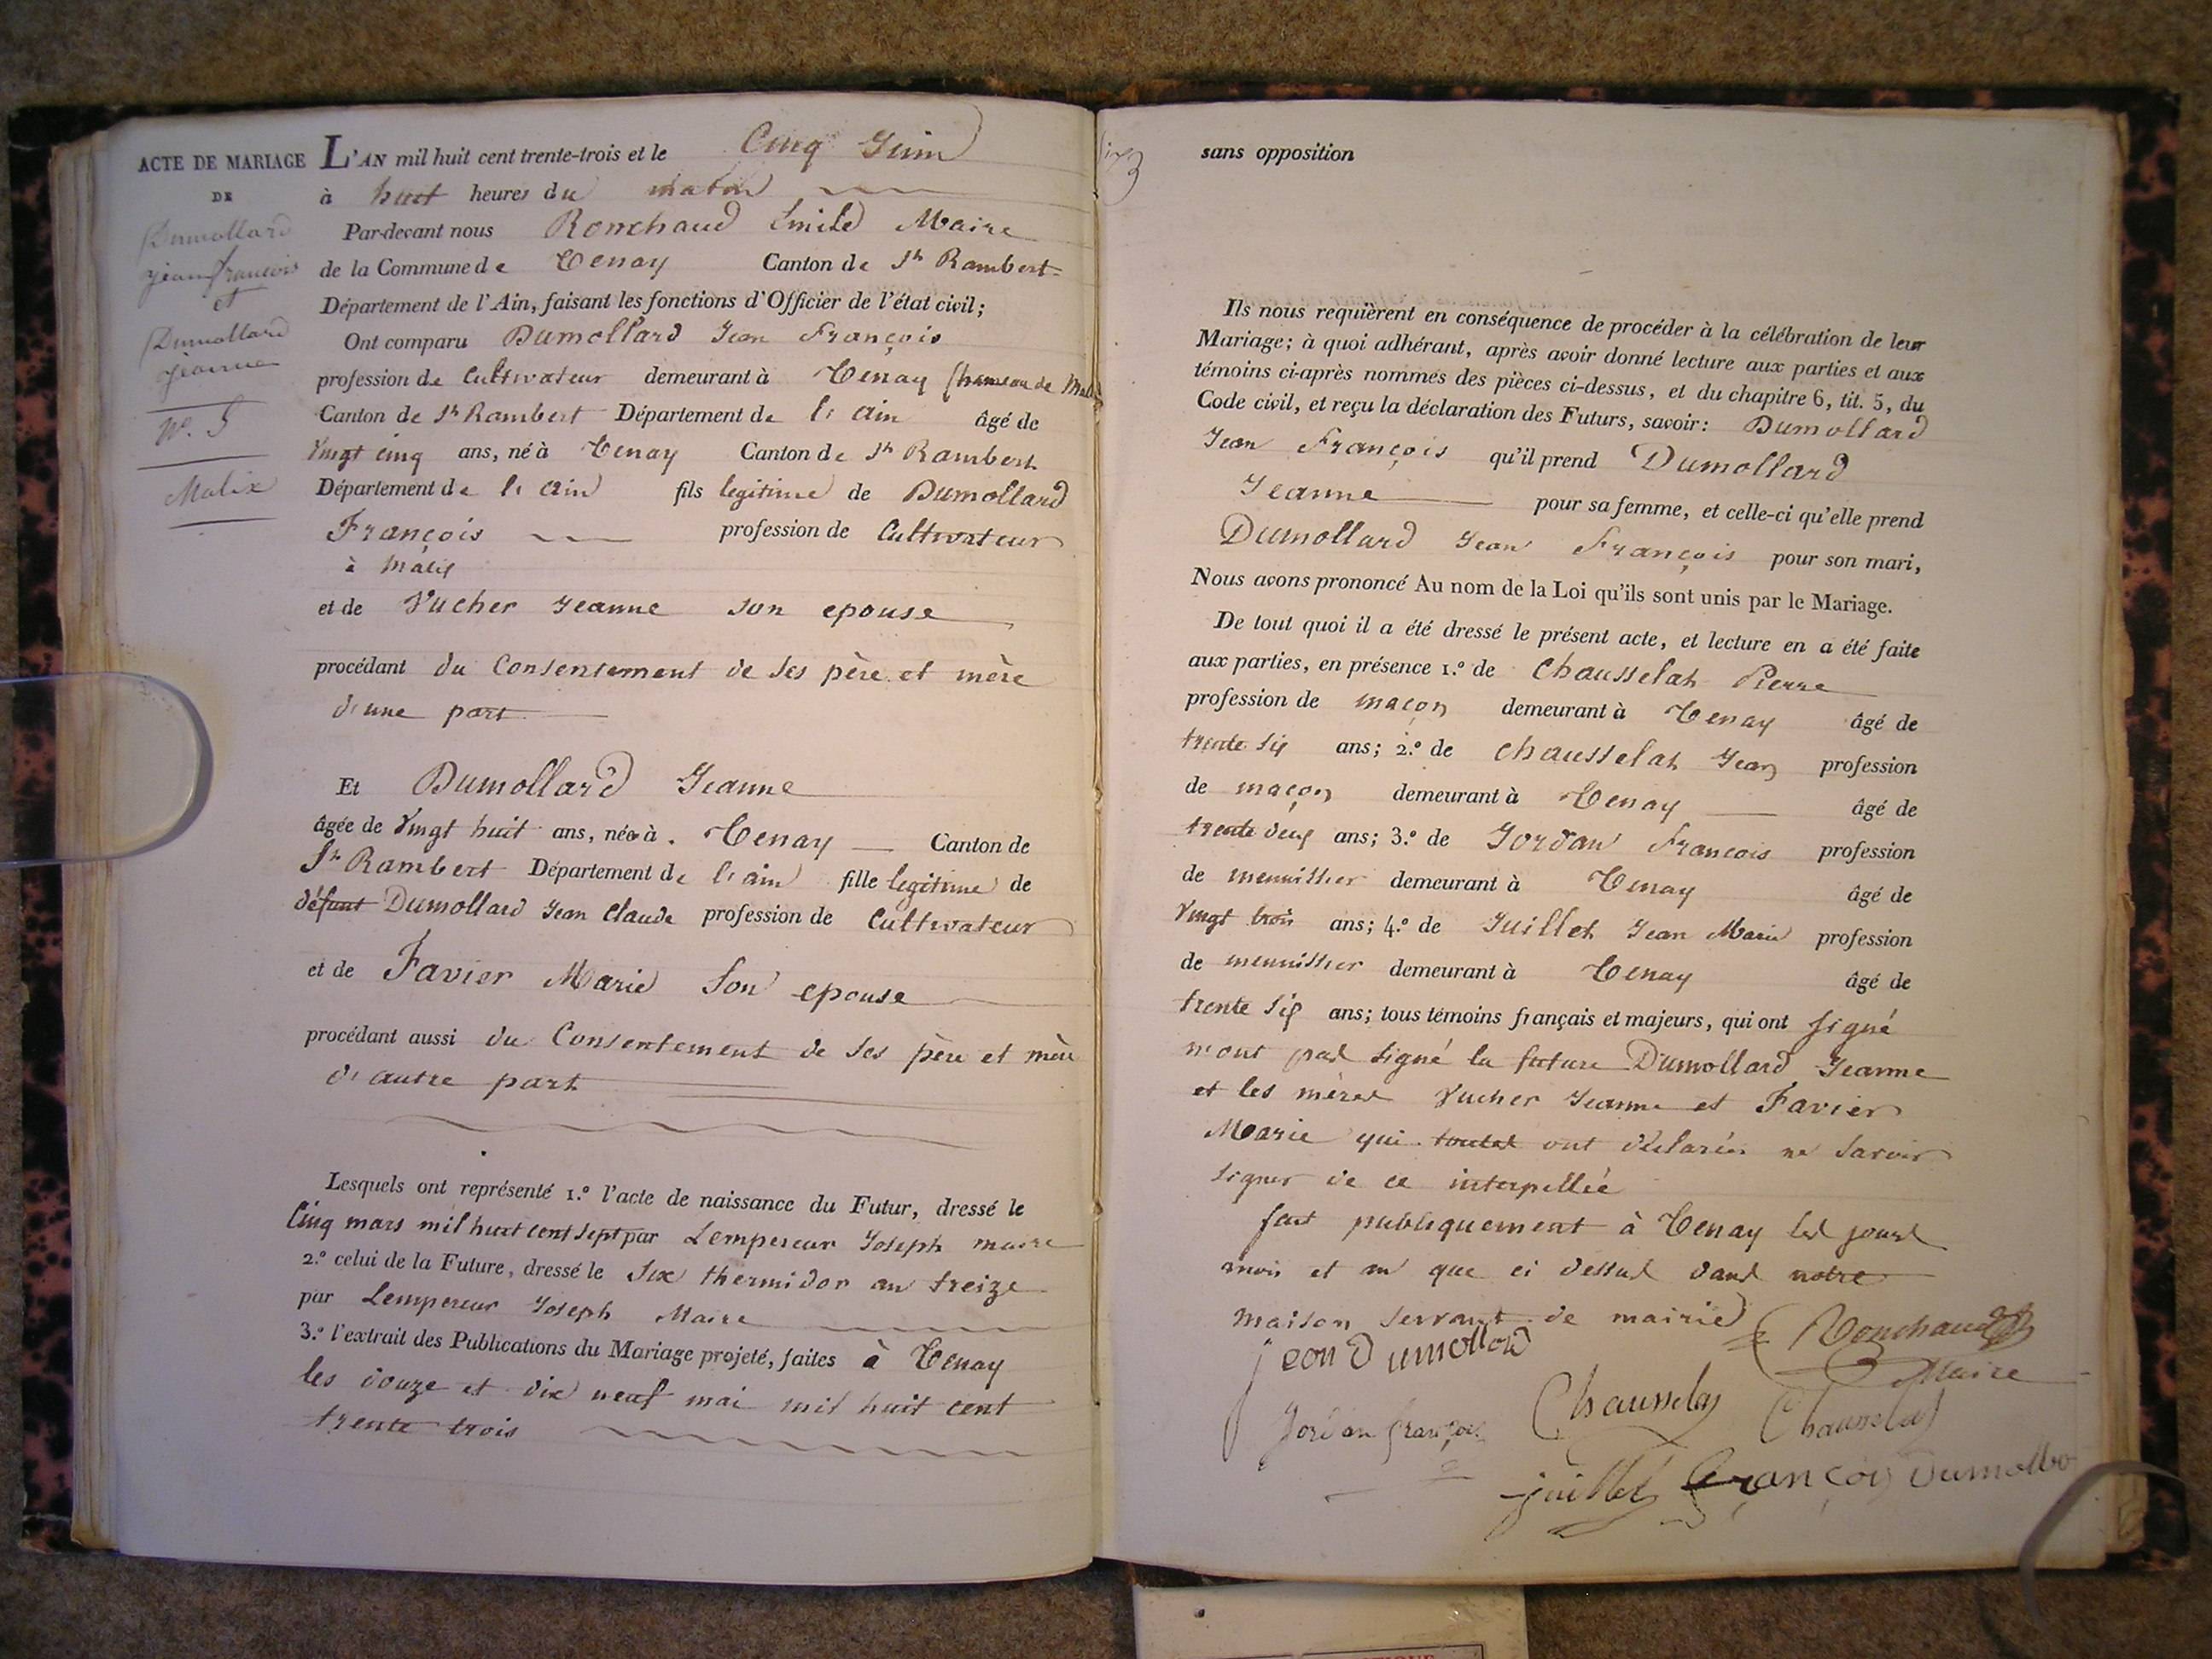 ACTE DE MARIAGE
DE
Dumollard
jean françois
et
Dumollard
jeanne
N°. 5
Malix
L'AN mil huit cent trente-trois et le Cinq Juin
à huit heures du matin
Par-devant nous Ronchaud Emile Maire
de la Commune de Tenay Canton de St Rambert
Département de l'Ain, faisant les fonctions d'Officier de l'état civil;
Ont comparu Dumollard Jean François
profession de Cultivateur demeurant à Tenay (hameau de
Canton de St Rambert Département de l'ain âgé de
vingt cinq ans, né à Tenay Canton de St Rambert
Département de l'ain fils legitime de Dumollard
François profession de Cultivateur
à Malix
et de Vucher Jeanne son epouse
procédant du Consentement de ses père et mère
d'une part
Et Dumollard Jeanne
âgée de vingt huit ans, née à Tenay Canton de
St Rambert Département de l'ain fille legitime de
défunt Dumollard Jean Claude profession de Cultivateur
et de Favier Marie son epouse
procédant aussi du Consentement de ses père et mère
d'autre part
Lesquels ont représenté 1.° l'acte de naissance du Futur, dressé le
Cinq mars mil huit cent sept par Lempereur Joseph maire
2.° celui de la Future, dressé le six thermidor an treize
par Lempereur Joseph Maire
3.° l'extrait des Publications du Mariage projeté, faites à Tenay
les douze et dix neuf mai mil huit cent
trente trois
sans opposition
Ils nous requièrent en conséquence de procéder à la célébration de leur
Mariage; à quoi adhérant, après avoir donné lecture aux parties et aux
témoins ci-après nommés des pièces ci-dessus, et du chapitre 6, tit. 5, du
Code civil, et reçu la déclaration des Futurs, savoir: Dumollard
Jean François qu'il prend Dumollard
Jeanne pour sa femme, et celle-ci qu'elle prend
Dumollard Jean François pour son mari,
Nous avons prononcé Au nom de la Loi qu'ils sont unis par le Mariage.
De tout quoi il a été dressé le présent acte, et lecture en a été faite
aux parties, en présence 1.° de Chausselat Pierre
profession de maçon demeurant à Tenay âgé de
trente six ans; 2.° de Chausselat Jean profession
de maçon demeurant à Tenay âgé de
trente deux ans; 3.° de Jordan François profession
de menuisier demeurant à Tenay âgé de
vingt trois ans; 4.° de Juillet Jean Marie profession
de menuisier demeurant à Tenay âgé de
trente six ans; tous témoins français et majeurs, qui ont signé
n'ont pas signé la future Dumollard Jeanne
et les mères Vucher Jeanne et Favier
Marie qui toutes ont déclarées ne savoir
signer de ce interpellée
fait publiquement à Tenay les jours
mois et an que ci dessus dans notre
maison servant de mairie Ronchaud
jean Dumollard Maire
Jordan françois Chausselat Chausselat
juillet françois Dumollar